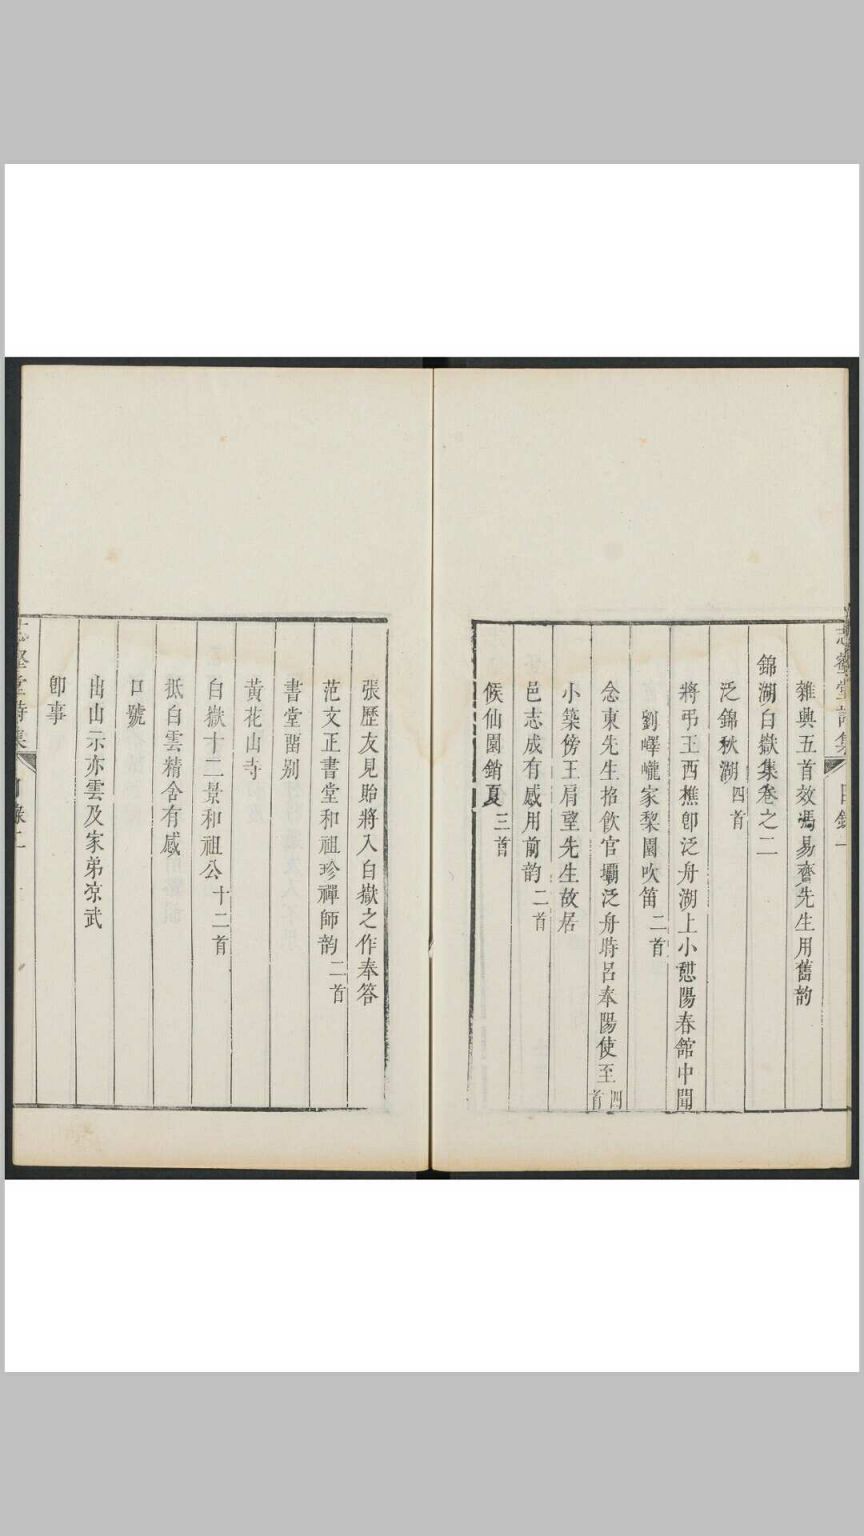 雜興五首效馮易齋先生用舊韵
錦湖白嶽集卷之二
泛錦秋湖四首
將弔王西樵卽泛舟湖上小憇陽春舘中聞
劉嶧巄家棃園吹笛二首
念東先生招飲官壩泛舟時呂奉陽使至四首
小築傍王肩望先生故居
邑志成有感用前韵二首
候仙園銷夏三首
張歷友見貽將入白嶽之作奉答
范文正書堂和祖珍禪師韵二首
書堂畱别
黃花山寺
白嶽十二景和祖公十二首
抵白雲精舍有感
口號
出山示亦雲及家弟凉武
卽事